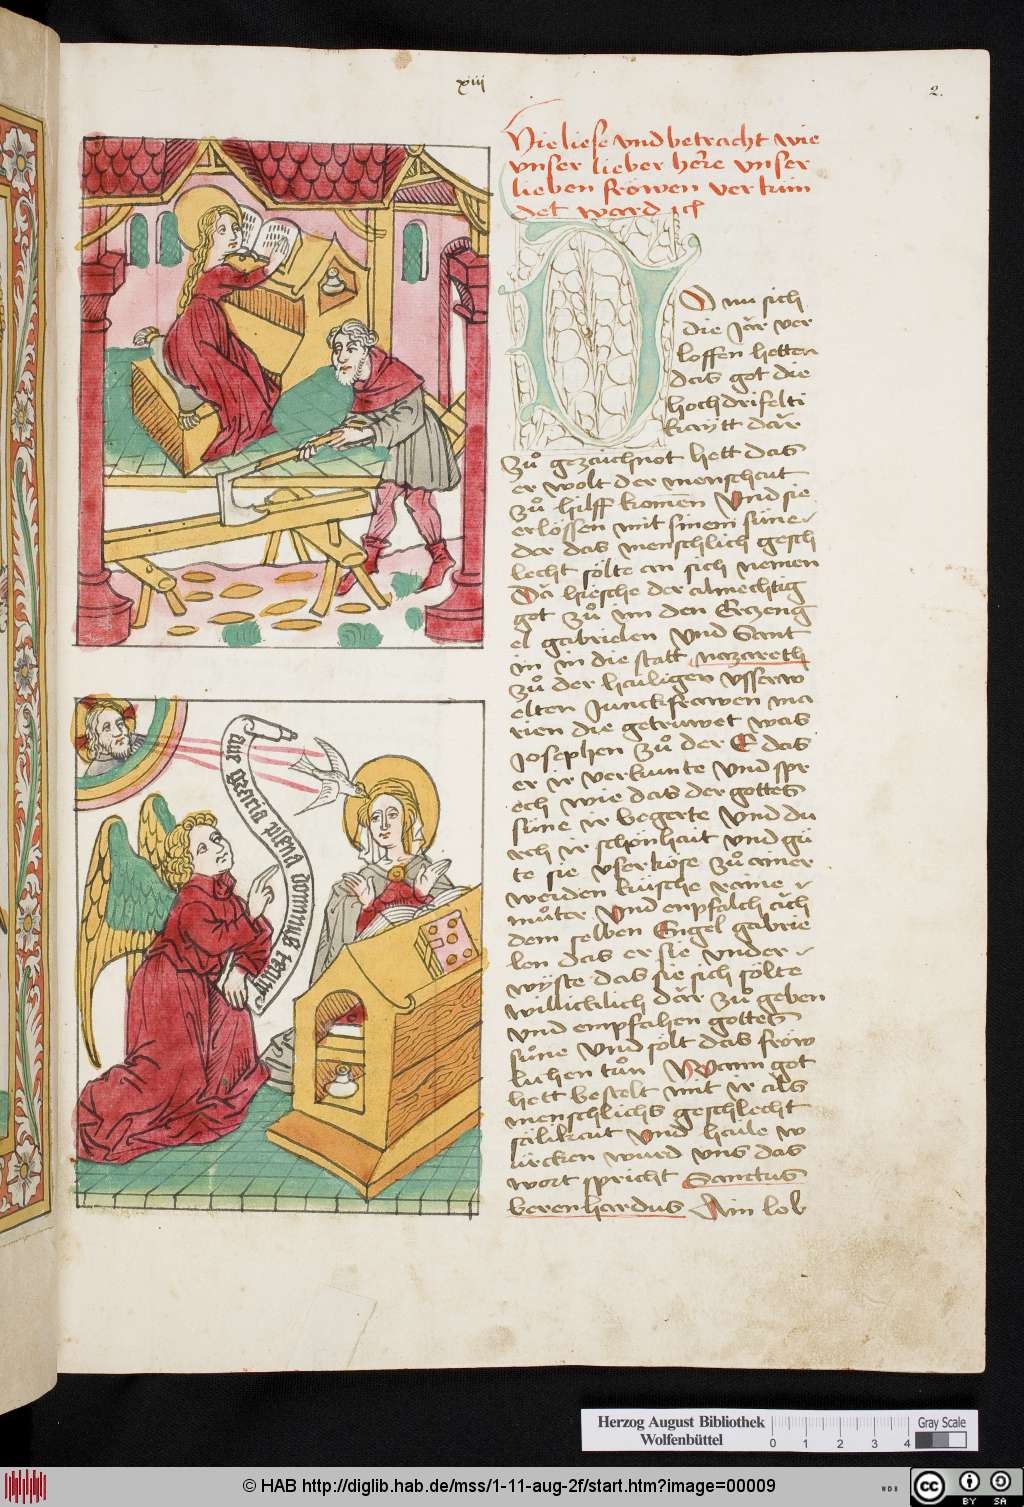 xiii
2.
Hie liese vnd betracht wie
vnser lieber here vnser
lieben fröwen ver kün
det ward ich
D
O nu sich
die Jăr ver
loffen hetten
das got die
hoch drifelti
kaÿtt dăr
zů gezaichnot hett das
er wolt der menschait
zů hilff komen Vnd sie
erlössen mit sinem süne
der das menschlich gesch
lecht sölte an sich nemen
Da hiesche der almechtig
got zů im den Erczeng
el gabrielen Vnd Sant
in in die statt nazareth
zů der hailigen vsserw
elten Junckfrawen ma
rien die getruwet was
Josephen zů der E das
er ir verkunte Vnd spr
ech wie das der gottes
süne ir begerte Vnd du
rch ir schönhait vnd gü
te sie vserköse zů ainer
werden küsche raine
můter Vnd enpfalch äch
dem selben Engel gabrie
len das er sie vnder
wyste das sie sich sölte
willicklich dăr zů geben
vnd empfahen gottes
süne Vnd sölt das fröw
lichen tůn Wann got
hett bestelt mit ir als
menschlichs geschlecht
sälikait Vnd haile w
ürcken wurd vns das
wort spricht Sanctus
berenhardus Ain lob
aue gracia plena dominus tecum
Herzog August Bibliothek
Wolfenbüttel
0 1 2 3 4
Gray Scale
© HAB http://diglib.hab.de/mss/1-11-aug-2f/start.htm?image=00009
WDB
cc BY SA